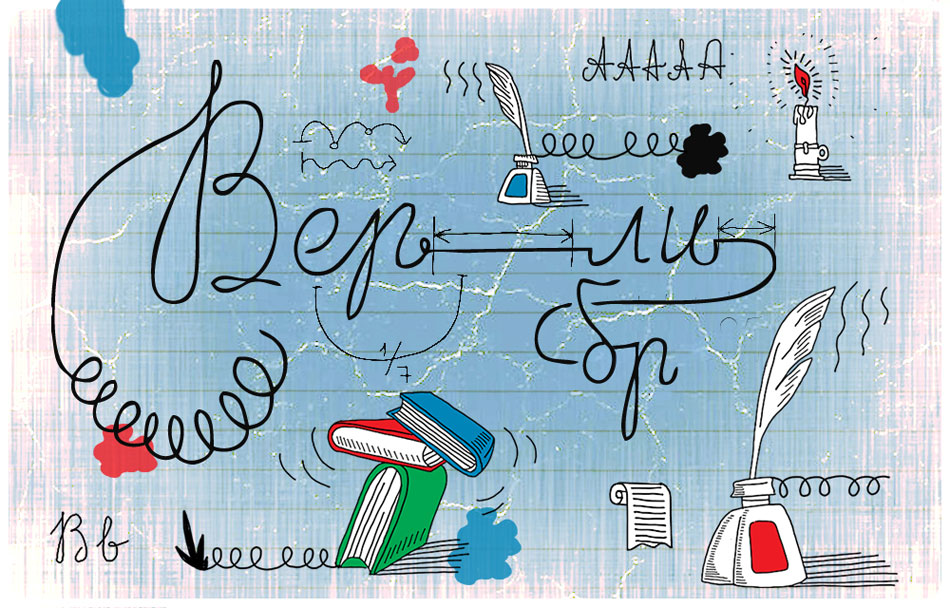 ААААА
Верли
бр
1/7
В в